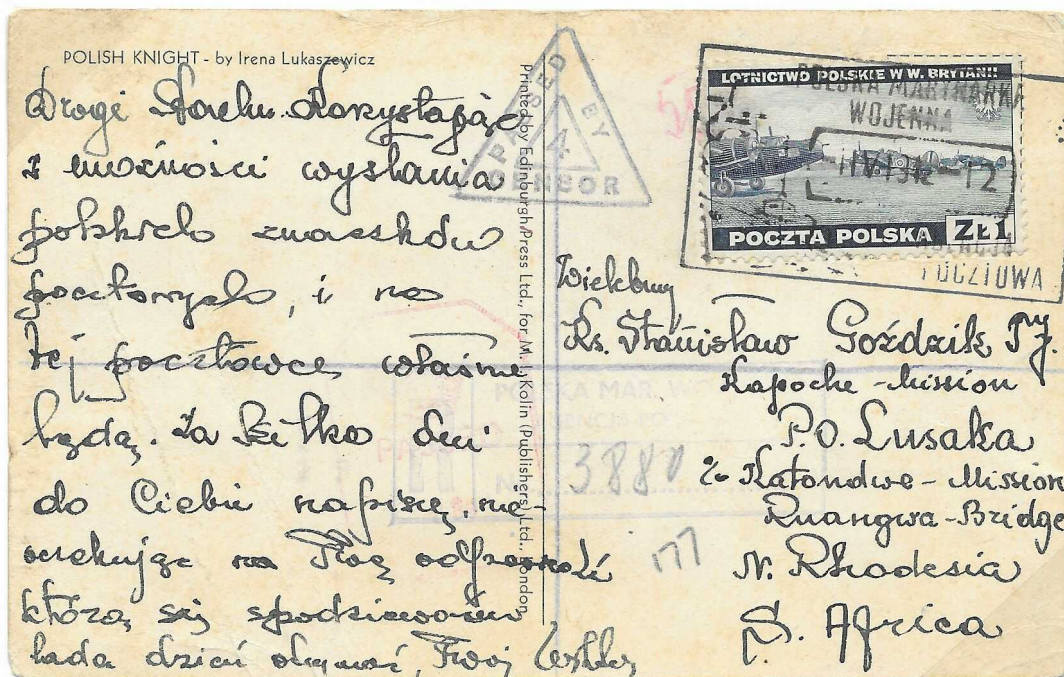 POLISH KNIGHT - by Irena Lukaszewicz
Drogi Stachu. Korzystając
z możności wysłania
polskich znaczków
pocztowych, i na
tej pocztówce właśnie
będą. Za kilka dni
do Ciebie napiszę, nie
czekając na Twą odpowiedź
którą się spodziewam
lada dzień otrzymać. Twój
Printed by Edinburgh Press Ltd., for M. I. Kolin (Publishers) Ltd., London
PASSED BY
4
CENSOR
LOTNICTWO POLSKIE W W. BRYTANII
POCZTA POLSKA ZŁ1
POLSKA MARYNARKA
WOJENNA
12
POCZTOWA
POLSKA MAR.
N 3880
177
Wielebny
Ks. Stanisław Goździk T.J.
Kapoche - Mission
P.O. Lusaka
c/o Katondwe - Mission
Luangwa - Bridge
N. Rhodesia
S. Africa